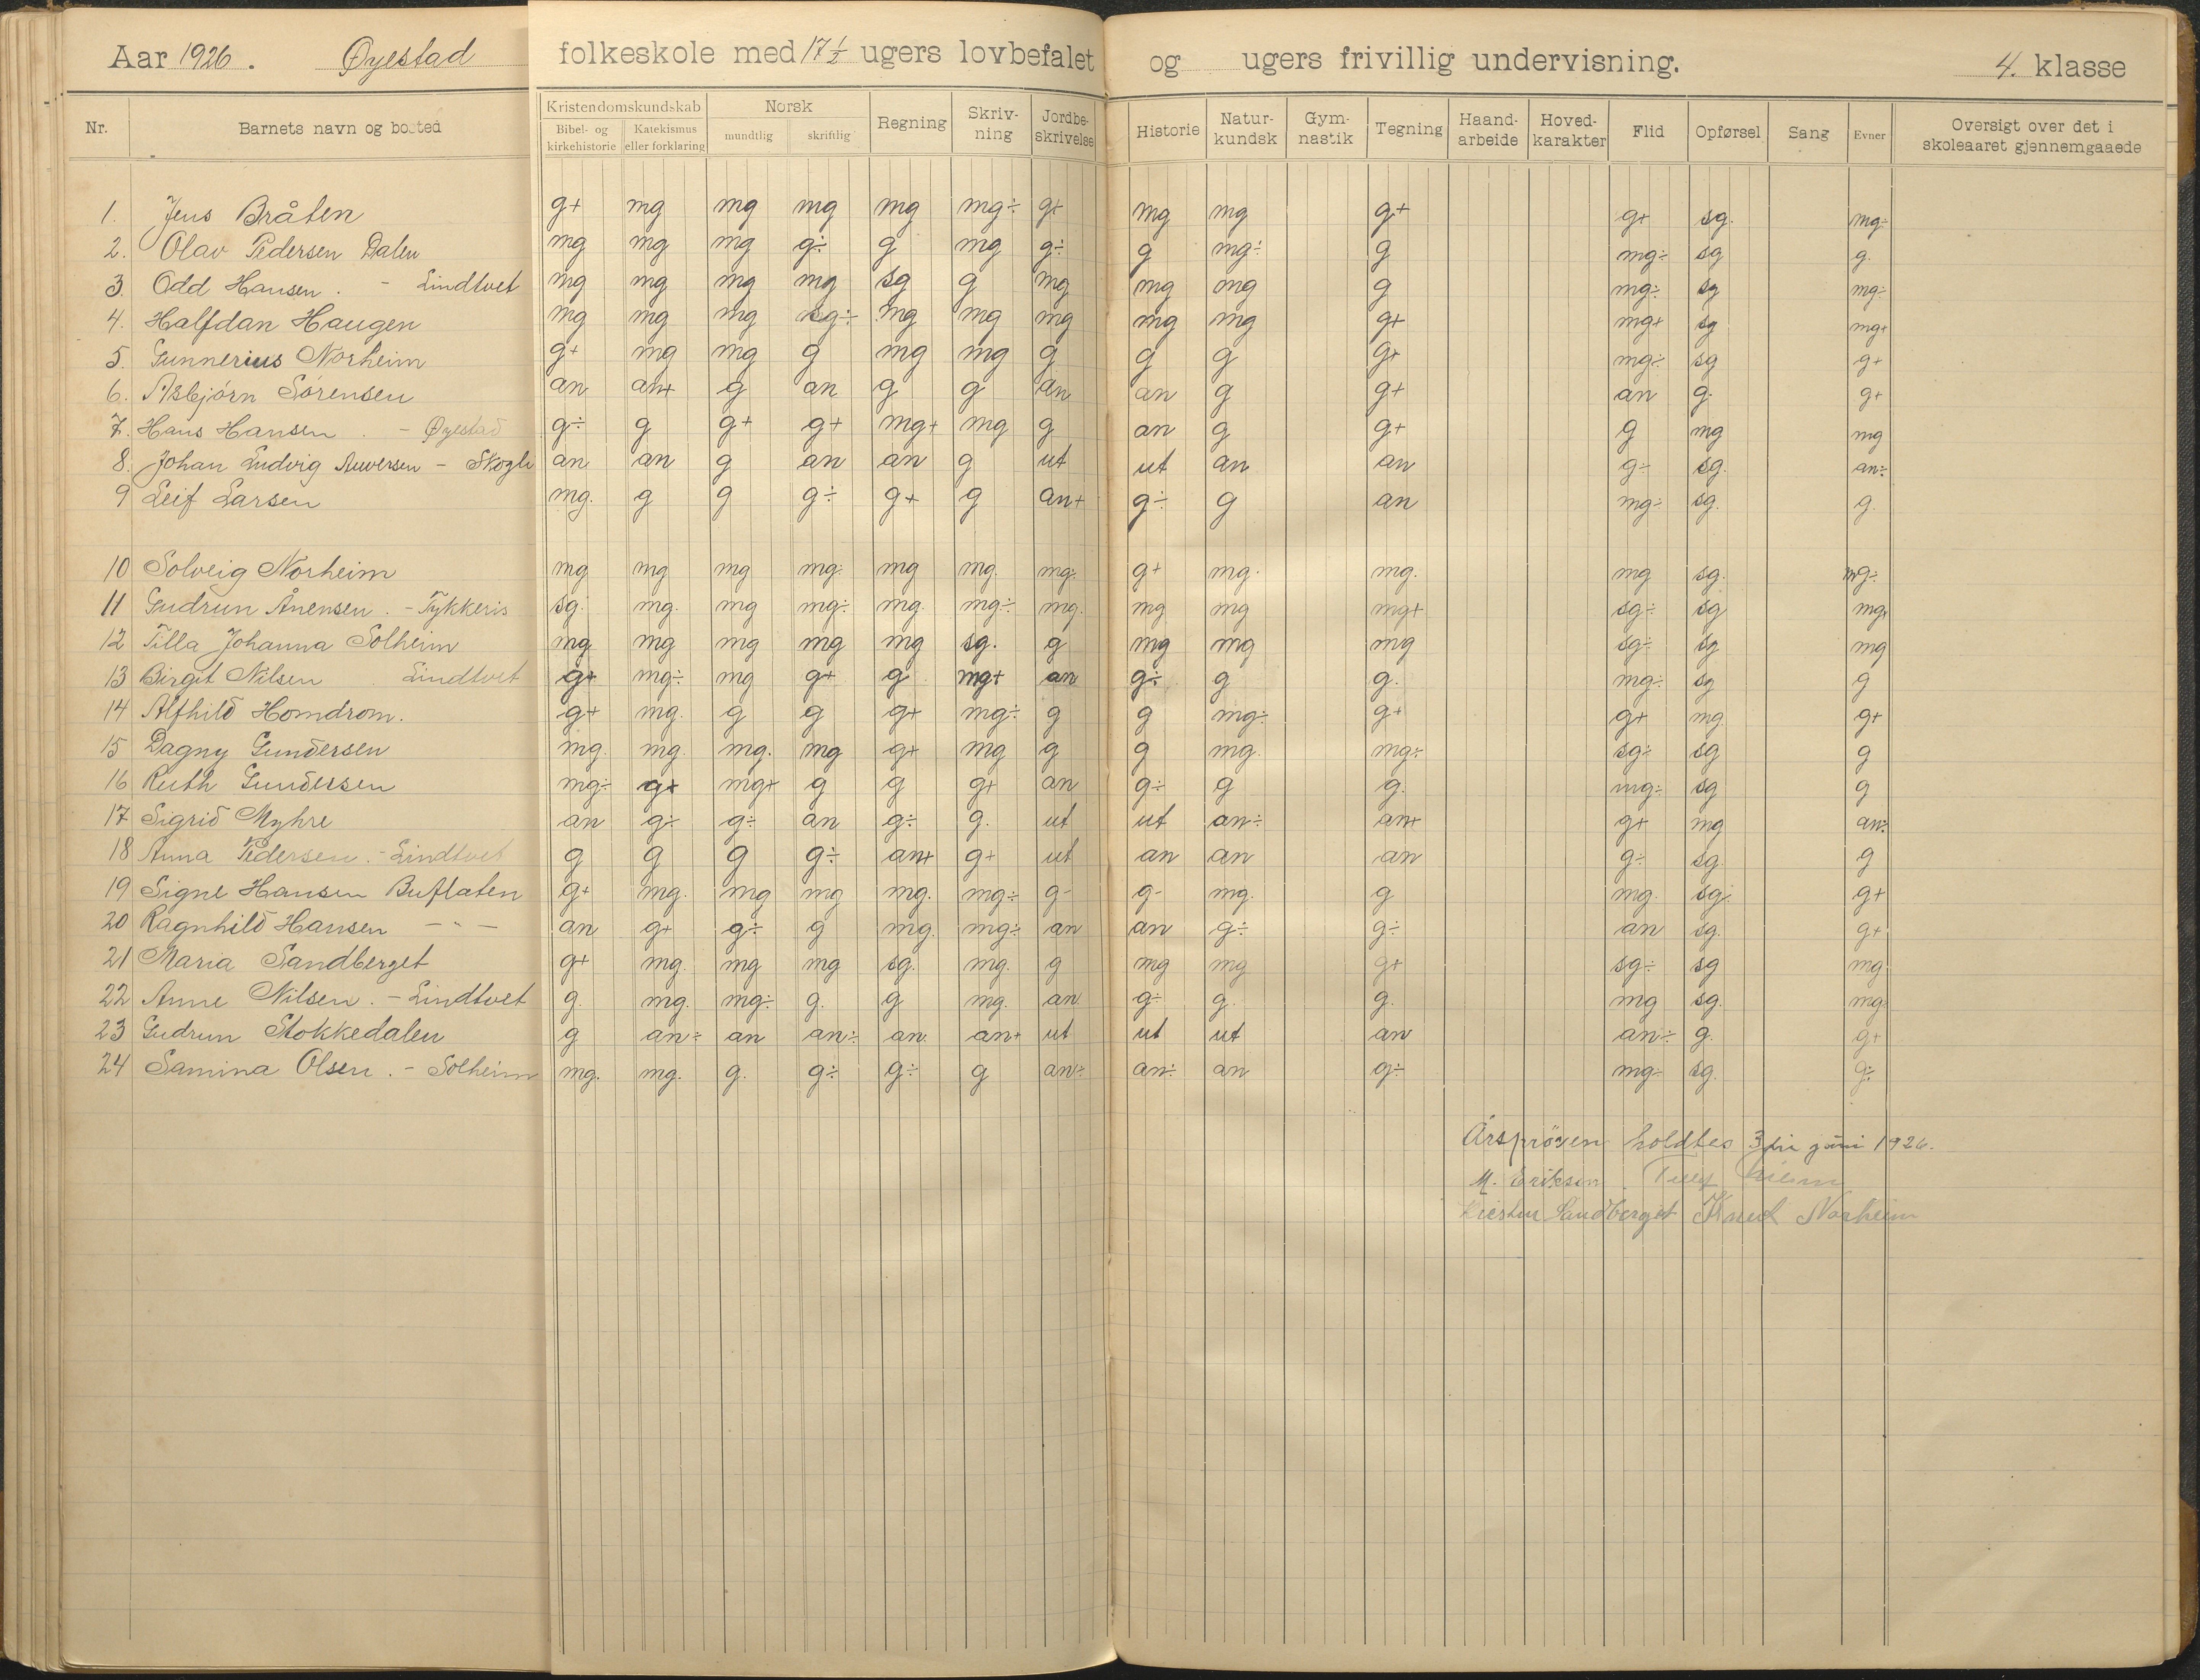 Aar 1926. Øyestad folkeskole med 17 1/2 ugers lovbefalet og ugers frivillig undervisning. 4. klasse
Nr. Barnets navn og bosted Kristendomskundskab Bibel- og kirkehistorie Katekismus eller forklaring Norsk mundtlig skriftlig Regning Skriv-ning Jordbe-skrivelse Historie Natur-kundsk Gym-nastik Tegning Haand-arbeide Hoved-karakter Flid Opførsel Sang Evner Oversigt over det i skoleaaret gjennemgaaede
1. Jens Bråten g+ mg mg mg mg mg÷ g+ mg mg g+ g+ sg. mg÷
2. Olav Pedersen Dalen mg mg mg g÷ g mg g÷ g mg÷ g mg÷ sg g.
3. Odd Hansen. - Lindtvet mg mg mg mg sg g mg mg mg g mg÷ sg mg÷
4. Halfdan Haugen mg mg mg sg÷ mg mg mg mg mg g+ mg+ sg mg+
5. Gunnerius Norheim g+ mg mg g mg mg g g g g+ mg÷ sg g+
6. Asbjörn Sörensen an an+ g an g g an an g g+ an g. g+
7. Hans Hansen. - Øyestad g÷ g g+ g+ mg+ mg g an g g+ g mg mg
8. Johan Ludvig - an an g an an g ut ut an an g÷ sg. an÷
9 Leif Larsen mg. g g g÷ g+ g an+ g÷ g an mg÷ sg. g.
10 Solveig Norheim mg mg mg mg÷ mg mg. mg÷ g+ mg. mg. mg sg. mg÷
11 Gudrun Ånensen. - Tykkeris sg. mg. mg mg÷ mg. mg÷ mg. mg mg mg+ sg÷ sg mg
12 Tilla Johanna Solheim mg mg mg mg mg sg. g mg mg mg sg÷ sg mg
13 Birgit Nilsen Lindtvet g+ mg÷ mg g+ g mg+ an g÷ g g. mg÷ sg g
14 Alfhild Homdrom. g+ mg. g g g+ mg÷ g g mg÷ g+ g+ mg g+
15 Dagny Gundersen mg. mg. mg. mg g+ mg g g mg. mg÷ sg÷ sg g
16 Ruth Gundersen mg÷ g+ mg+ g g g+ an g÷ g g. mg÷ sg g
17 Sigrid Myhre an g÷ g÷ an g÷ g. ut ut an÷ an+ g+ mg an÷
18 Anna Pedersen. - Lindtvet g g g g÷ an+ g+ ut an an an g÷ sg. g
19 Signe Hansen Buflaten g+ mg. mg mg mg. mg÷ g- g- mg. g mg. sg÷ g+
20 Ragnhild Hansen - " - an g+ g÷ g mg. mg÷ an an g÷ g÷ an sg. g+
21 Maria Sandberget g+ mg. mg mg sg. mg. g mg mg g+ sg÷ sg mg
22 Anne Nilsen. - Lindtvet g. mg. mg÷ g. g mg. an. g÷ g. g. mg sg. mg÷
23 Gudrun Stokkedalen g an÷ an an÷ an. an+ ut ut ut an an÷ g. g+
24 Samina Olsen. - Solheim mg. mg. g. g÷ g÷ g an÷ an÷ an g÷ mg÷ sg. g÷
Årspröven holdtes 3die juni 1926.
M. Eriksen
Kirsten Sandberget Knud Norheim